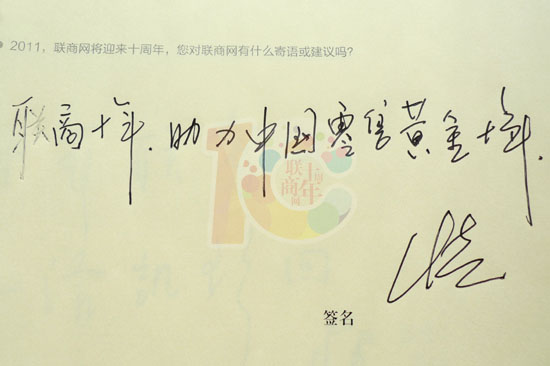 2011，联商网将迎来十周年，您对联商网有什么寄语或建议吗？
联商十年.助力中国零售黄金十年.
联商网
十周年
签名